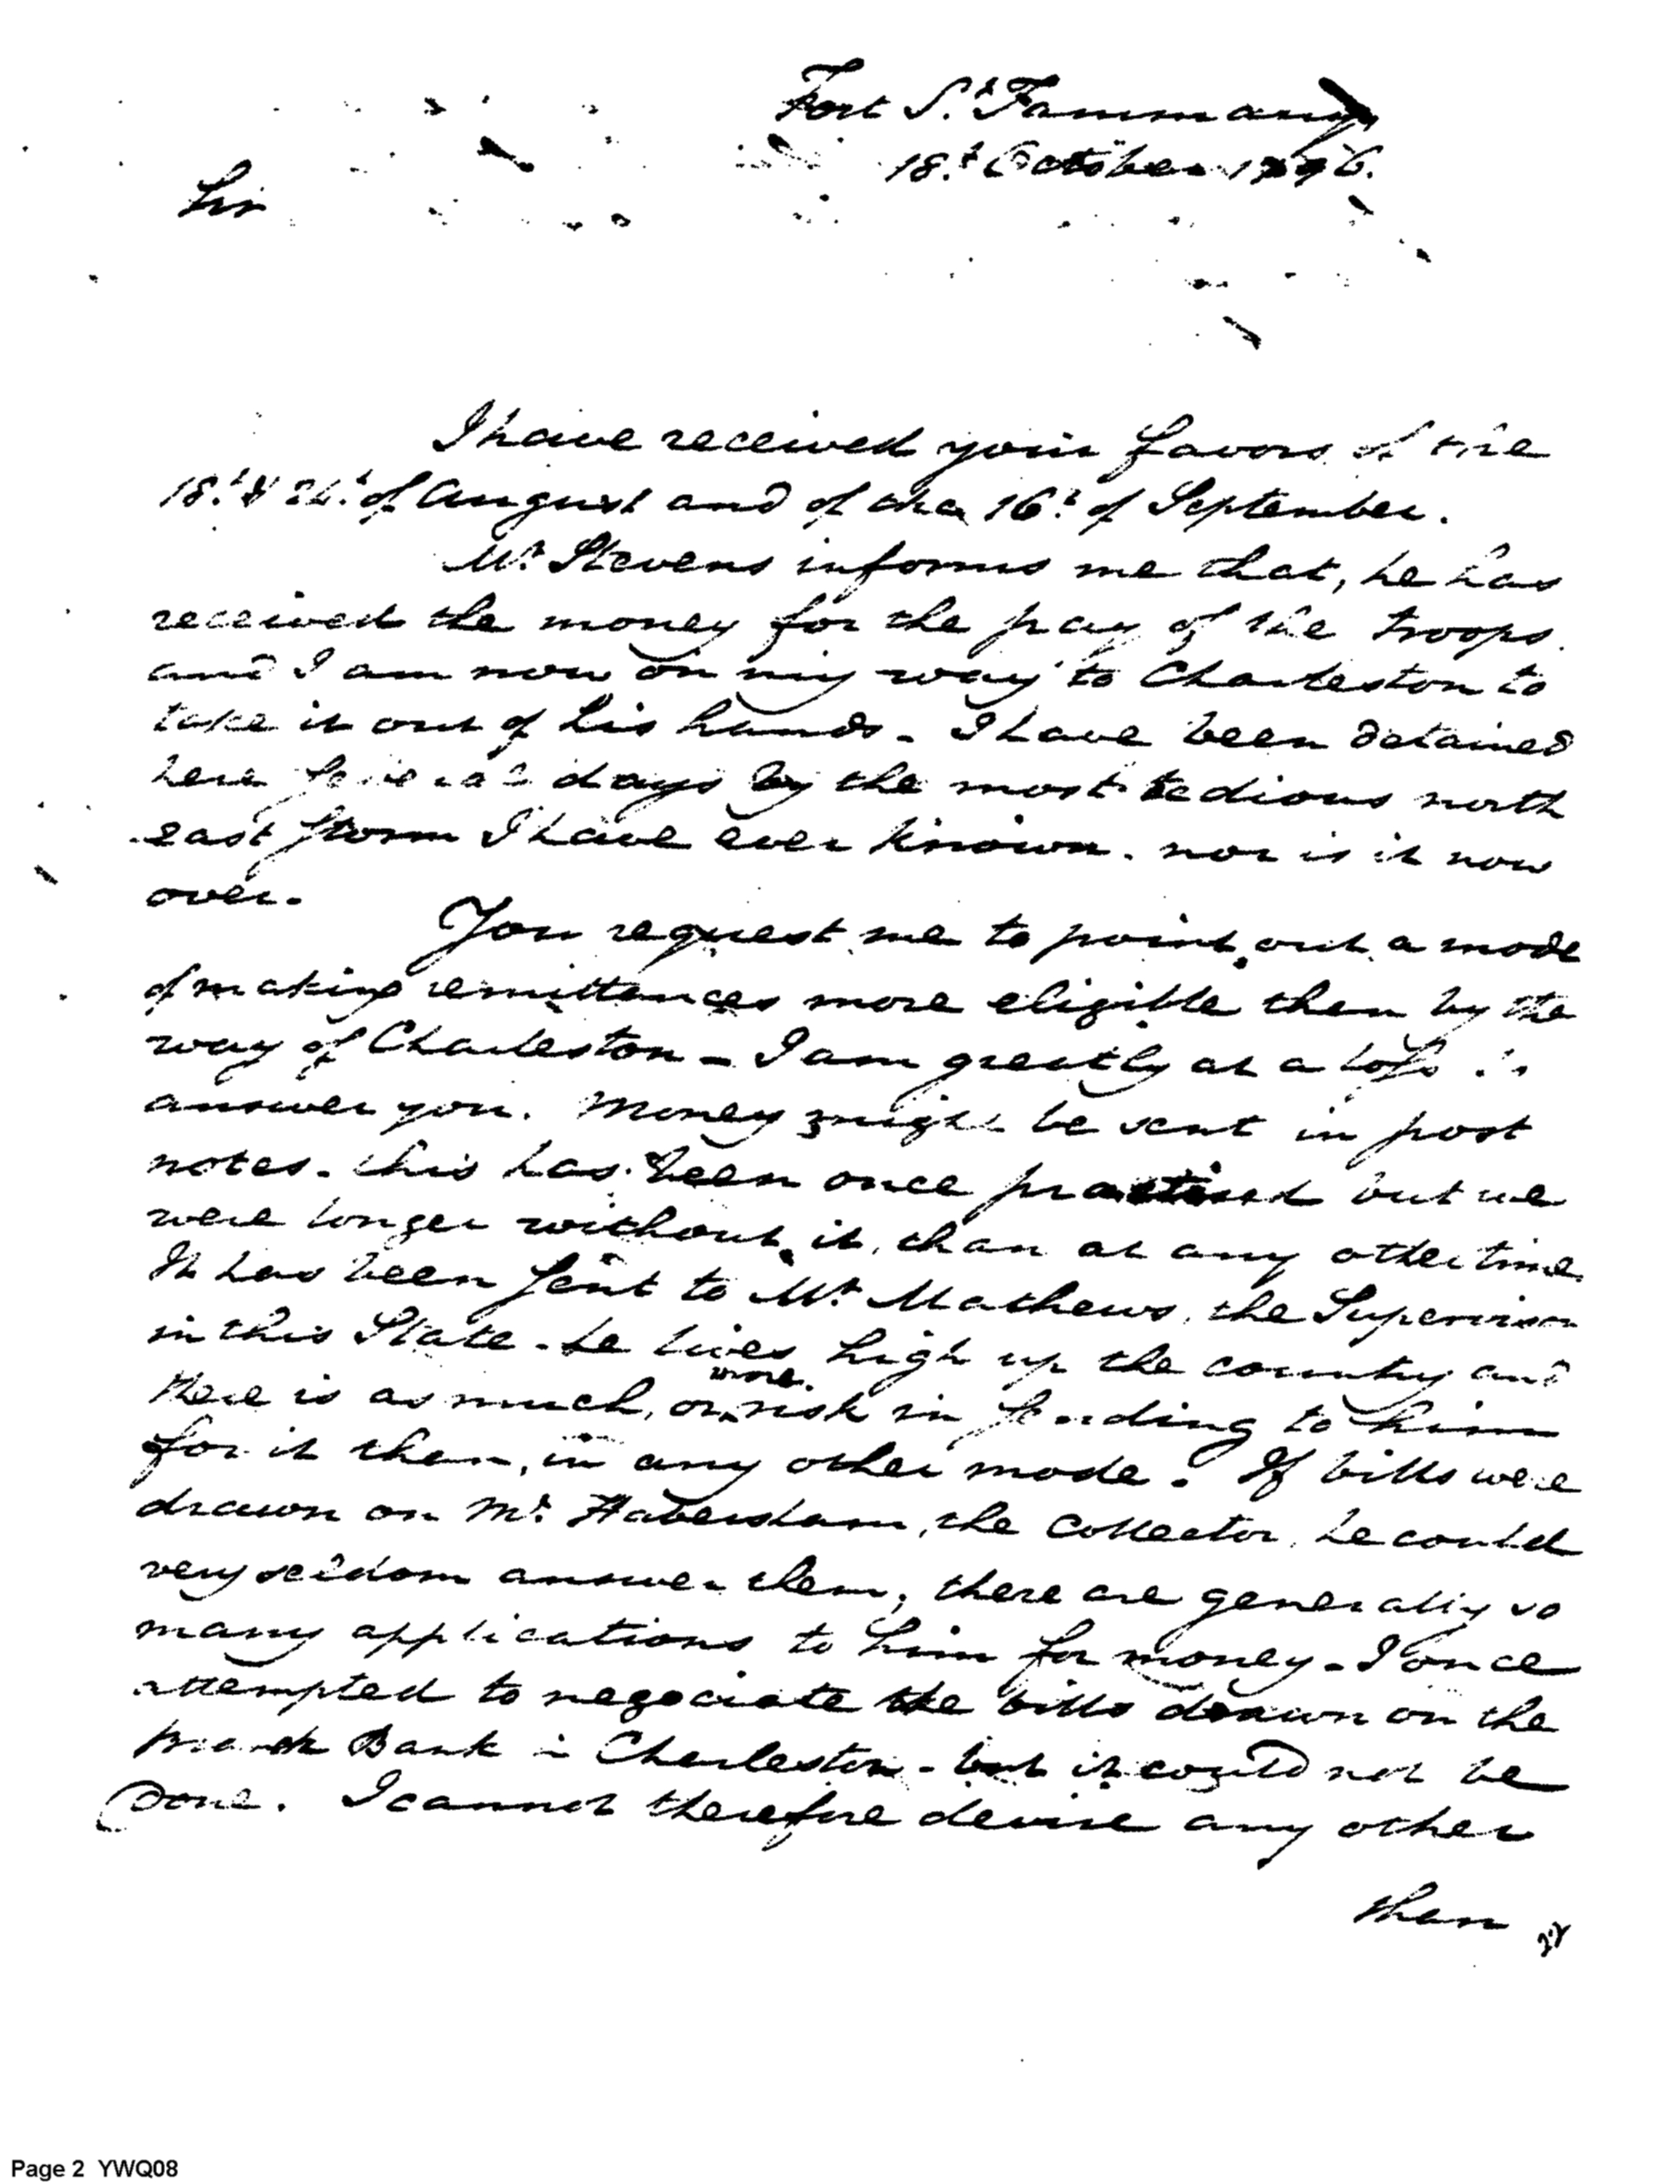 Fort St. Tammany
18.t October 1796.
Sir
I have received your favors of the
18.t & 24.t of August and of the 16.t of September.
Mr. Stevens informs me that, he has
received the money for the pay of the troops.
and I am now on my way to Charleston to
take it out of his hands - I have been detained
here several days by the most tedious north
east storm I have ever known. nor is it now
over.
You request me to point out a mode
of making remittances more eligible then by the
way of Charleston - I am greatly at a loss to
answer you. Money might be sent in post
notes. this has been once practised but we
were longer without it, than at any other time.
It has been sent to Mr. Mathews, the Supervisor
in this State - he lives high up the country and
more
there is as much, or risk in sending to him
for it then, in any other mode. If bills were
drawn on Mr. Habersham, the Collector, he could
very seldom answer them, there are generally so
many applications to him for money - I once
attempted to negociate the bills drawn on the
Branch Bank in Charleston - but it could not be
Done. I cannot therefore devise any other
then
Page 2 YWQ08